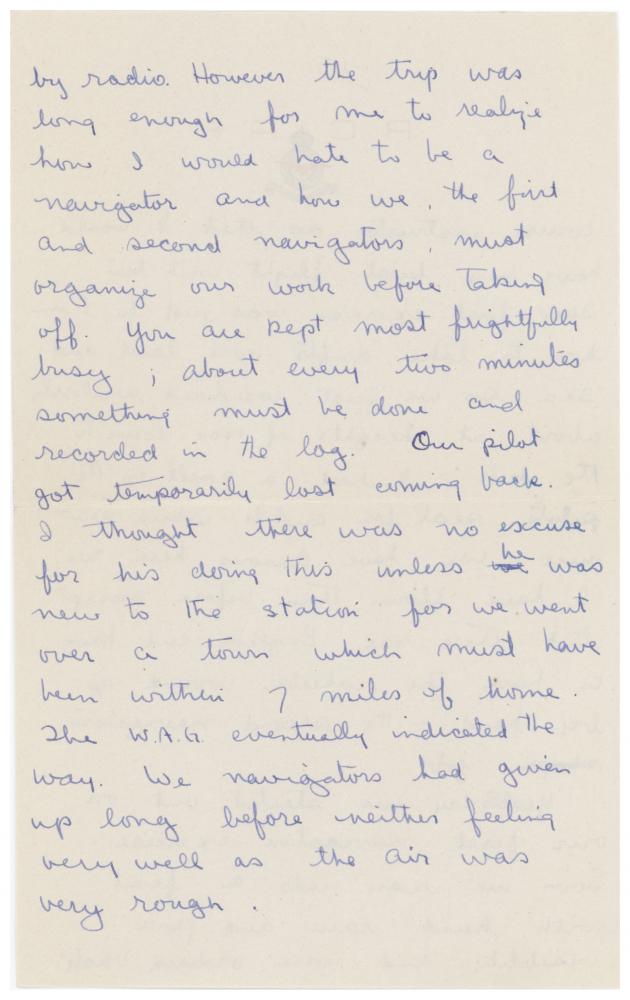 by radio. However the trip was
long enough for me to realize
how I would hate to be a
navigator and how we, the first
and second navigators, must
organize our work before taking
off. You are kept most frightfully
busy ; about every two minutes
something must be done and
recorded in the log. Our pilot
got temporarily lost coming back.
I thought there was no excuse
for his doing this unless he was
new to the station for we went
over a town which must have
been within 7 miles of home.
The W.A.G. eventually indicated the
way. We navigators had given
up long before neither feeling
very well as the air was
very rough .